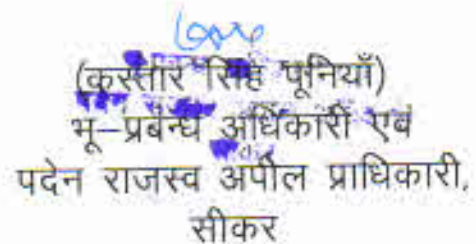 (करतार सिंह पूनियाँ)
भू–प्रबन्ध अधिकारी एवं
पदेन राजस्व अपील प्राधिकारी,
सीकर